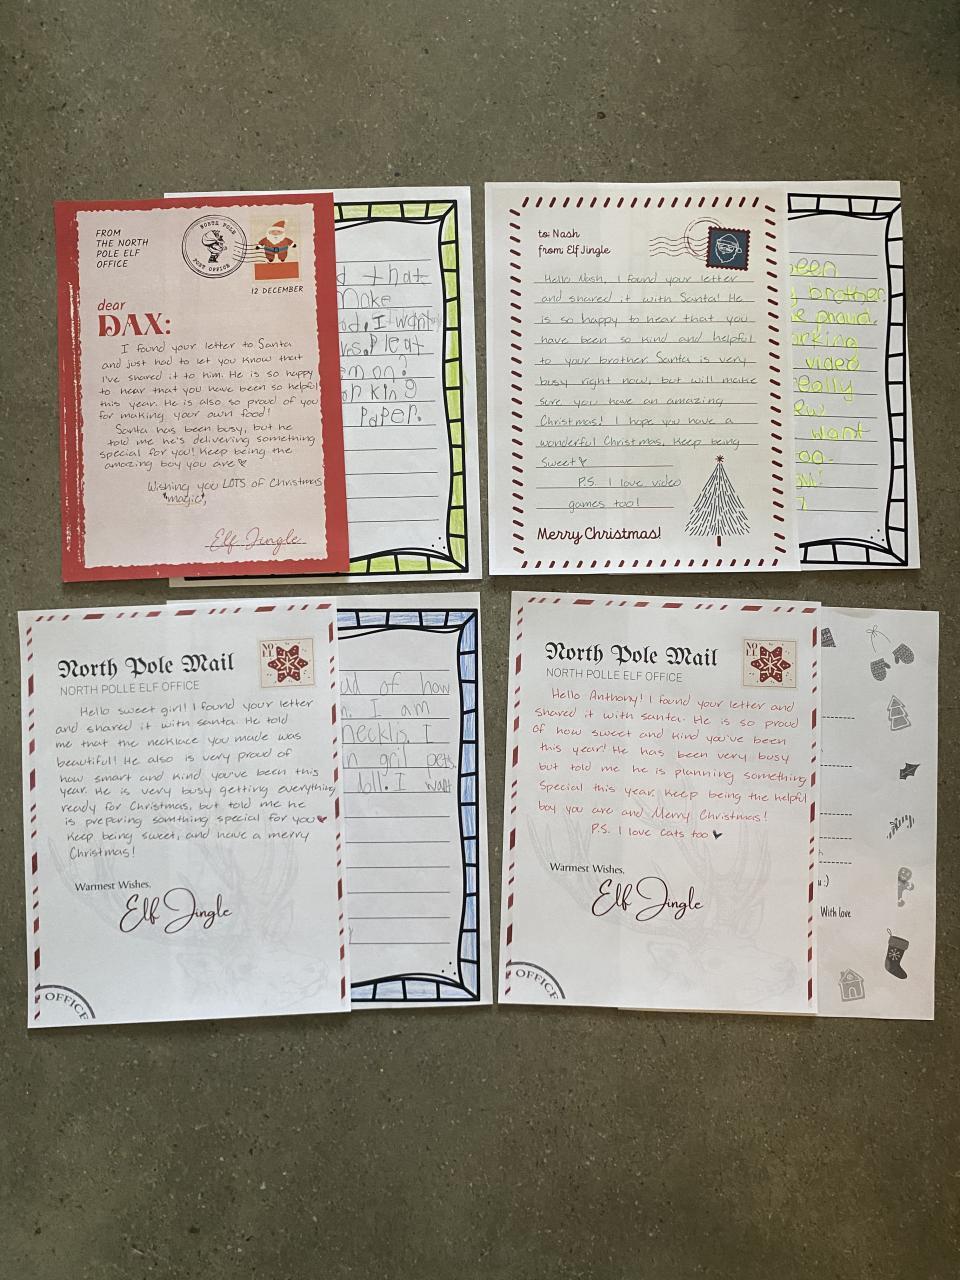 FROM
THE NORTH
POLE ELF
OFFICE
NORTH POLE
POST OFFICE
12 DECEMBER
dear
DAX:
I found your letter to Santa
and just had to let you know that
I've shared it to him. He is so happy
to hear that you have been so helpful
this year. He is also so proud of you
for making your own food!
Santa has been busy, but he
told me he's delivering something
special for you! Keep being the
amazing boy you are
Wishing you LOTS of Christmas
"magic",
Elf Jingle
that
make
I want
Pleat
on?
king
Paper.
to: Nash
from: Elf Jingle
Hello Nash, I found your letter
and shared it with Santa! He
is so happy to hear that you
have been so kind and helpful
to your brother. Santa is very
busy right now, but will make
sure you have an amazing
Christmas! I hope you have a
wonderful Christmas. Keep being
sweet
P.S. I love video
games too!
Merry Christmas!
been
brother.
proud.
video
really
want
North Pole Mail
NORTH POLLE ELF OFFICE
NOEL
Hello sweet girl! I found your letter
and shared it with santa. He told
me that the necklace you made was
beautiful! He also is very proud of
how smart and kind you've been this
year. He is very busy getting everything
ready for Christmas, but told me he
is preparing somthing special for you
Keep being sweet, and have a merry
Christmas!
Warmest Wishes,
Elf Jingle
OFFICE
of how
I am
necklis. I
gril pets.
doll. I want
North Pole Mail
NORTH POLLE ELF OFFICE
NOEL
Hello Anthony! I found your letter and
shared it with santa. He is so proud
of how sweet and kind you've been
this year! He has been very busy
but told me he is planning something
special this year. Keep being the helpful
boy you are and Merry Christmas!
P.S. I love cats too
Warmest Wishes,
Elf Jingle
OFFICE
:)
With love